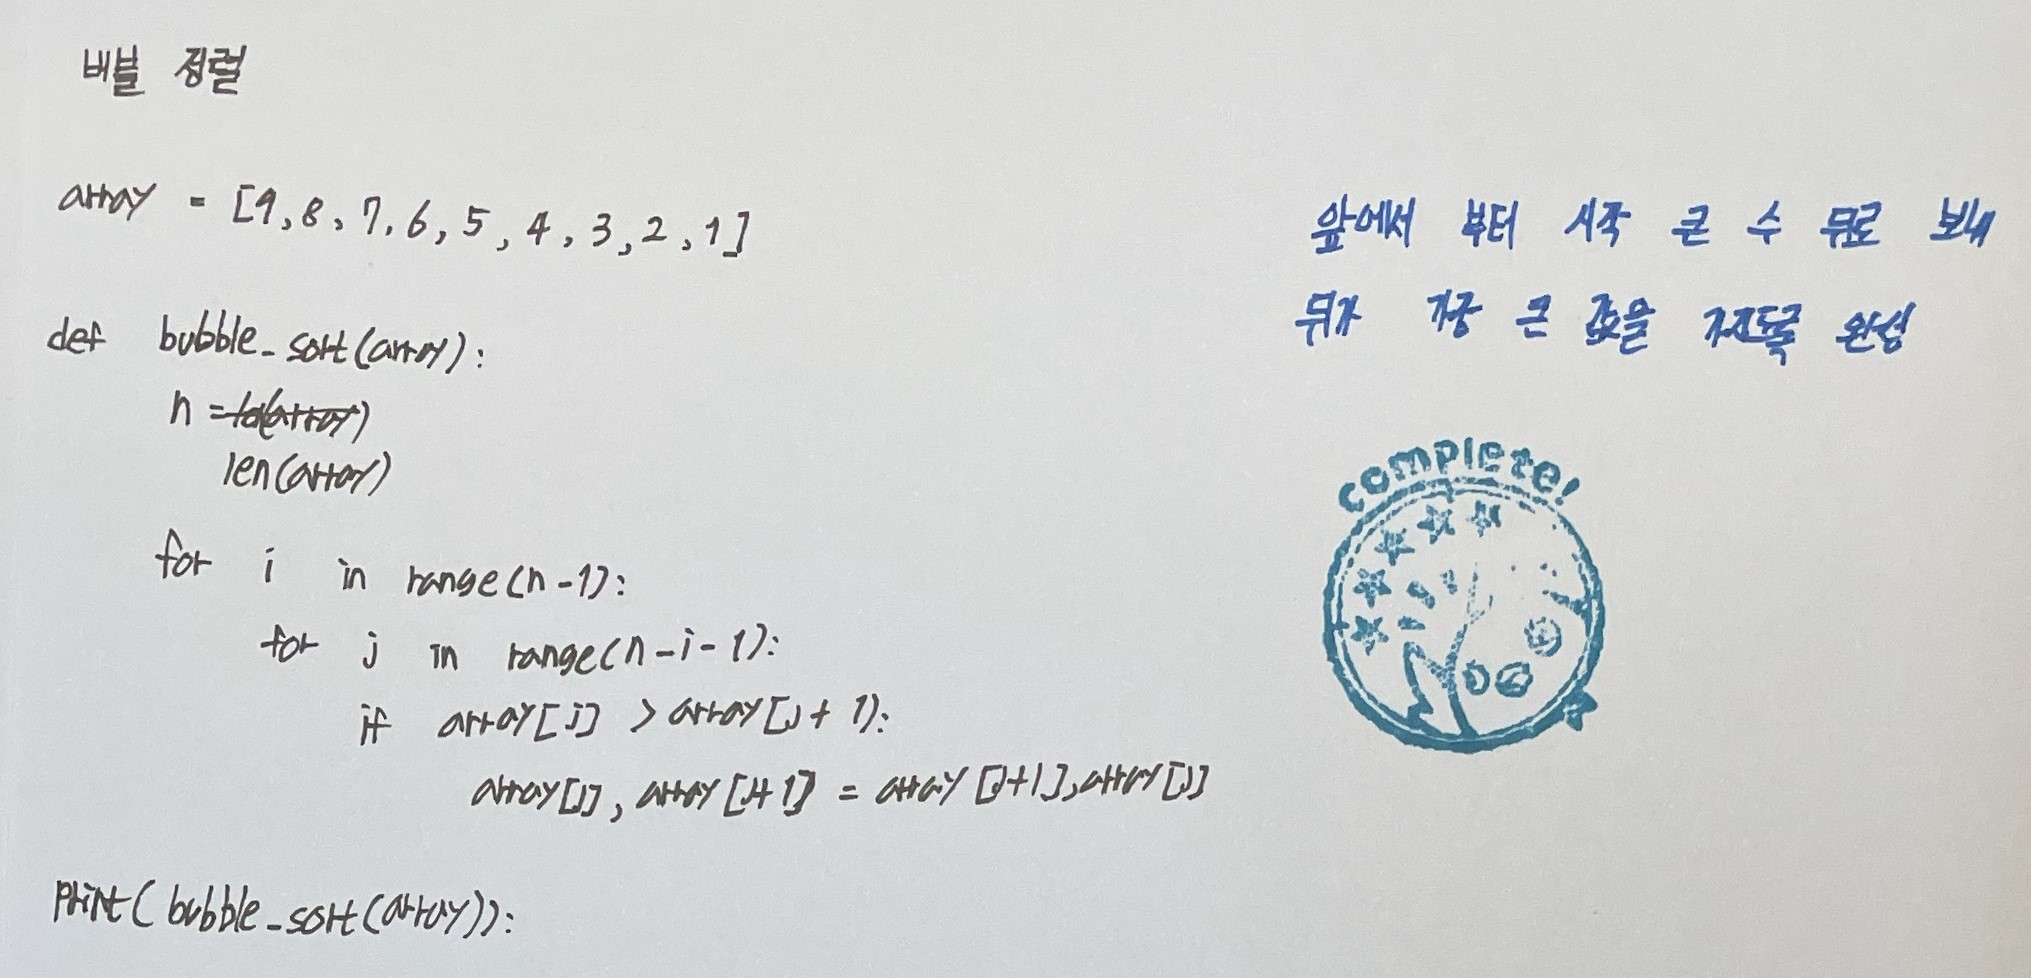 버블 정렬
array = [9, 8, 7, 6, 5, 4, 3, 2, 1]
def bubble_sort(array):
n =
len(array)
for i in range(n-1):
for j in range(n-i-1):
if array[j] > array[j+1):
array[j], array[j+1] = array[j+1], array[j]
print(bubble_sort(array)):
앞에서 부터 시작 큰 수 뒤로 보내
뒤가 가장 큰 값을 가지도록 완성
complete!